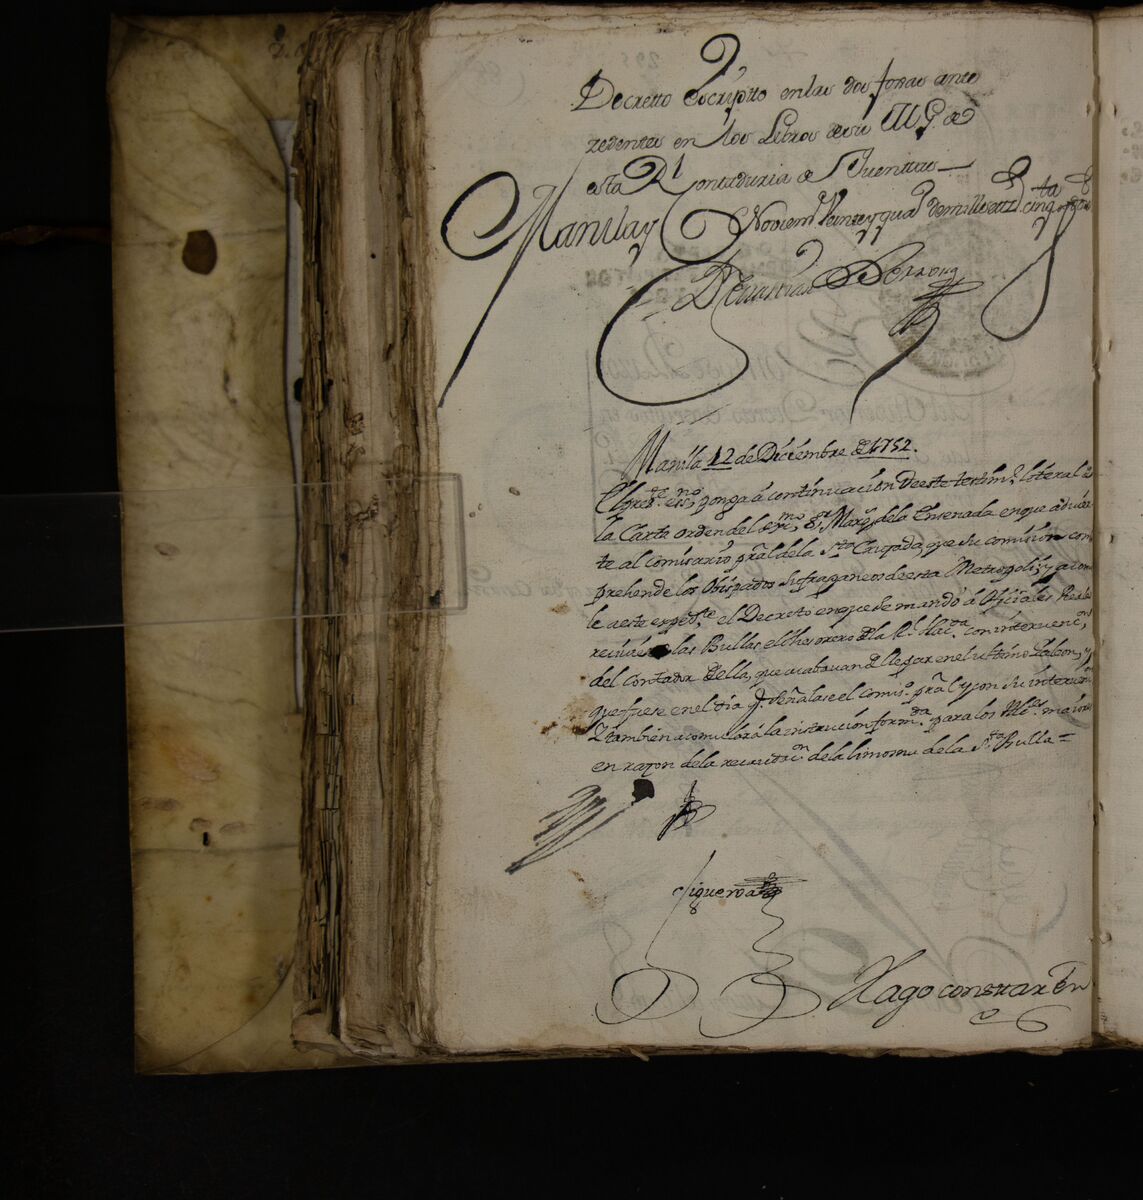 Decretto escrypto en las dos foxas ante
zedentes en los Lebros de su M
esta Rl Contaduria de Quentas
Manila y Noviem
Manila 12 de Diciembre de 1752.
El preste. essno. ponga á continuación de este testimo. lo teral
la Carta orden del exmo. Sr. Marqs. de la Ensenada en que advier
te al comisario pral de la Sta. Cruzada, que su comisión com
prehende los Obispados sufraganeos de esta Metropoli; y acomu
le a este expedte. el Decreto en que se mandó á Oficiales Reales
las Bullas el thesorero de la Rl. Hacda. con intervencn.
del Contador de ella, que acabavan de llegar en el ultimo Galeon, y
que fuese en el dia q. señalase el comiso. pral y con su intervencn.
Y tambien acomulará la instrucción formda. para los Alles. maiores
en razon de la recaudacn. de la limosna de la Sta. Bulla =
Sigueroa
Hago constar en